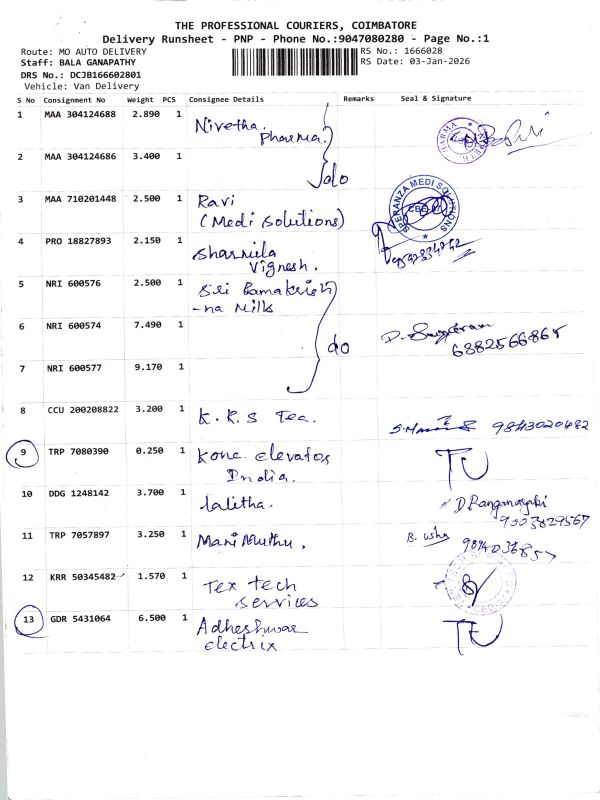 THE PROFESSIONAL COURIERS, COIMBATORE
Delivery Runsheet - PNP - Phone No.:9047080280 - Page No.:1
Route: MO AUTO DELIVERY
RS No.: 1666028
Staff: BALA GANAPATHY
RS Date: 03-Jan-2026
DRS No.: DCJB166602801
Vehicle: Van Delivery
S No Consignment No Weight PCS Consignee Details Remarks Seal & Signature
1 MAA 304124688 2.890 1 Nivetha pharma.
2 MAA 304124686 3.400 1 do
3 MAA 710201448 2.500 1 Ravi
(Medi Solutions)
SPERANZA MEDI SOLUTIONS
4 PRO 18827893 2.150 1 Sharmila
Vignesh.
5 NRI 600576 2.500 1 Sri Ramakrish
-na Milks
6 NRI 600574 7.490 1 do
6382566865
7 NRI 600577 9.170 1
8 CCU 200208822 3.200 1 K.R.S Tea.
9843020482
9 TRP 7080390 0.250 1 Kone elevators
India.
10 DDG 1248142 3.700 1 lalitha.
D. Ranganayaki
9003829567
11 TRP 7057897 3.250 1 Mani Muthu.
B. Usha
12 KRR 50345482 1.570 1 Tex tech
services
13 GDR 5431064 6.500 1 Adheshwar
electrix